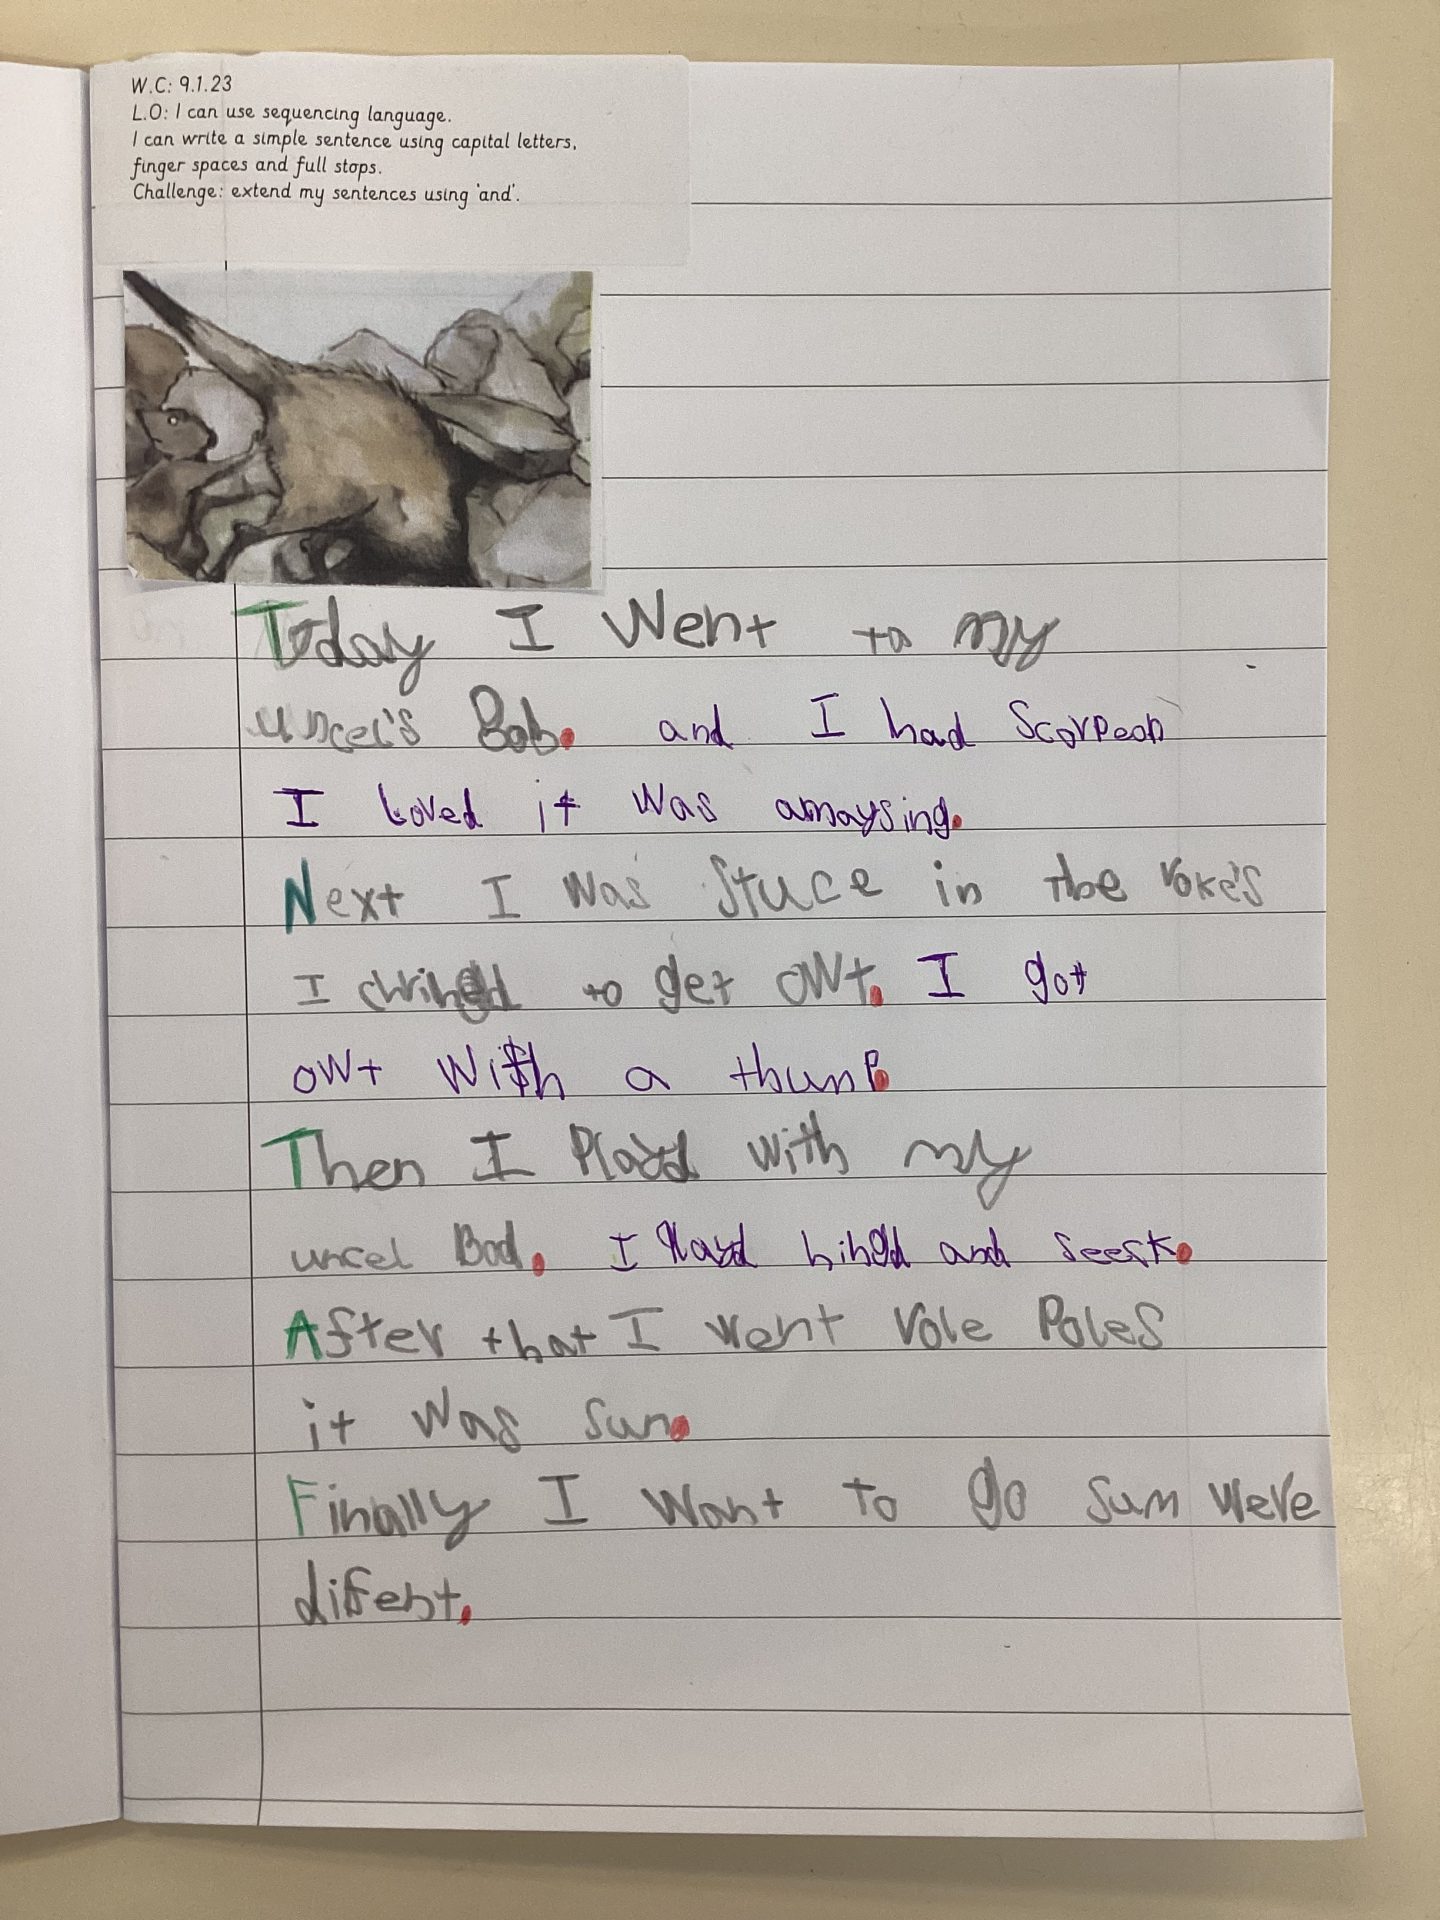 W.C: 9.1.23
L.O: I can use sequencing language.
I can write a simple sentence using capital letters,
finger spaces and full stops.
Challenge: extend my sentences using 'and'.
Today I Went to my
uncel's Bob. and I had Scorpeon
I loved it was amaysing.
Next I was Stuce in the roke's
I to get owt. I got
owt with a thunp.
Then I Playd with my
uncel Bod. I Playd and seesk.
After that I went role Poles
it was sun.
Finally I want to go sum were
difent.